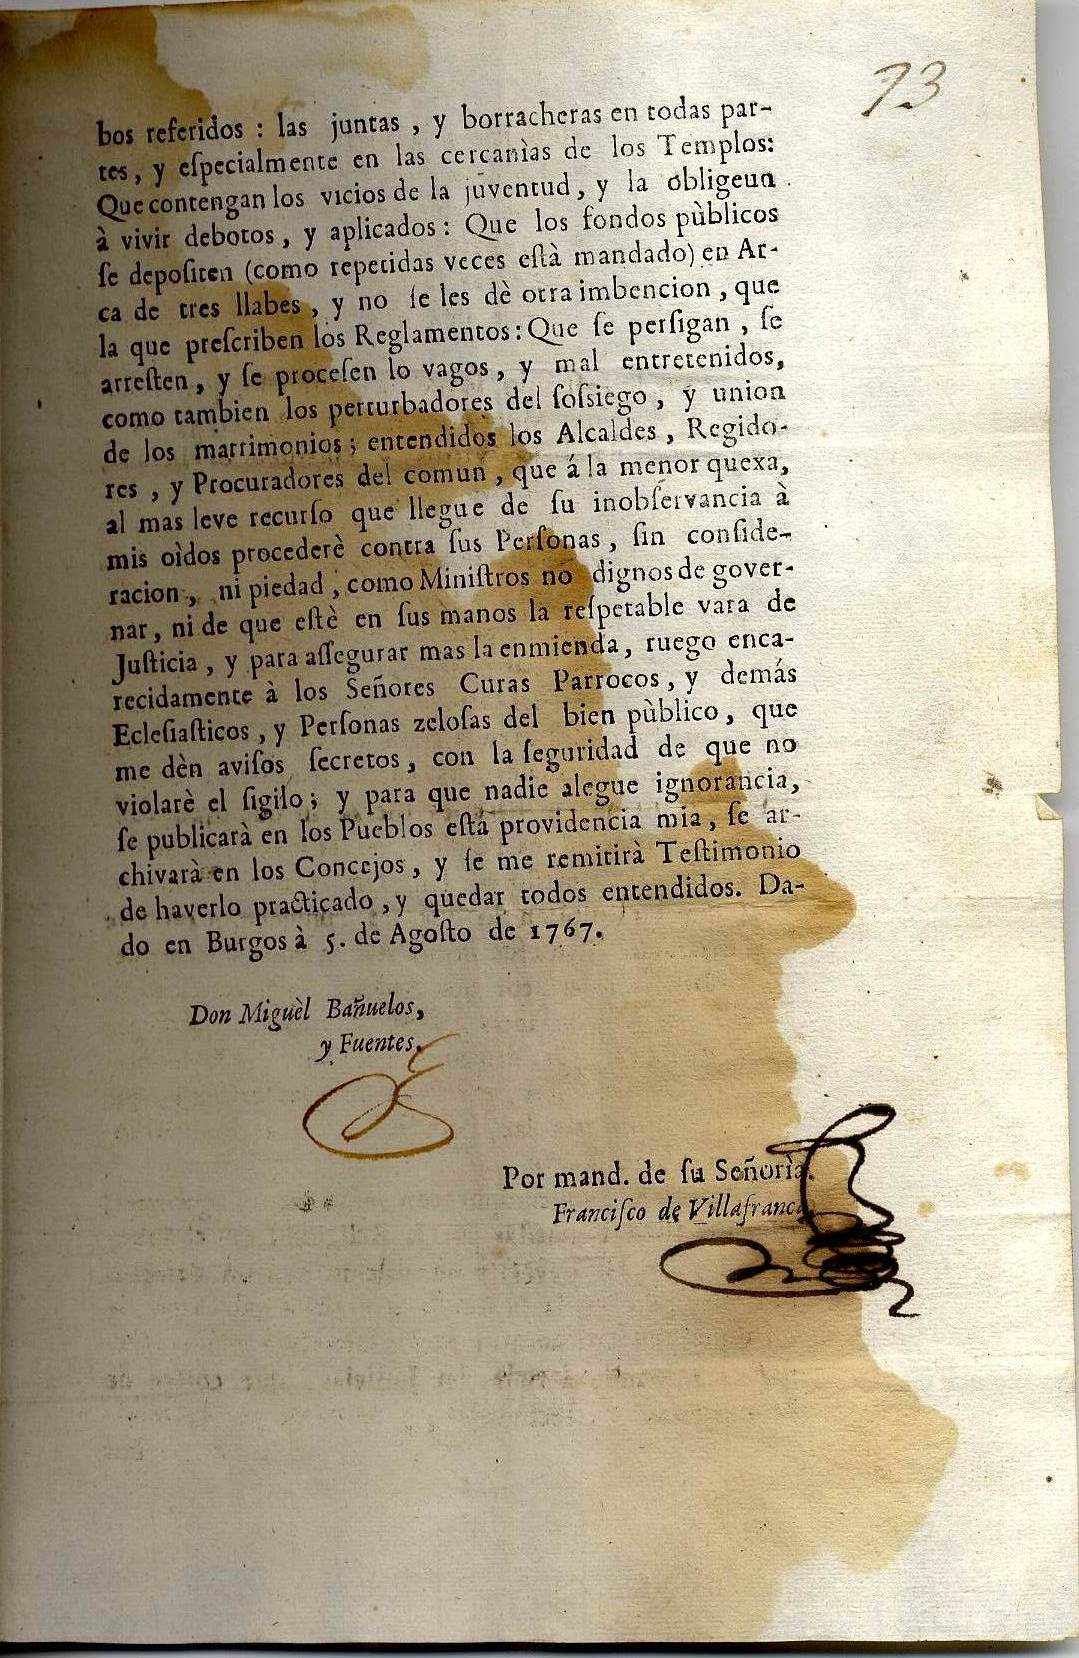 73
bos referidos : las juntas , y borracheras en todas par-
tes , y eſpecialmente en las cercanìas de los Templos:
Que contengan los vicios de la juventud , y la obligeun
à vivir debotos , y aplicados : Que los fondos pùblicos
ſe depoſiten (como repetidas veces eſtà mandado) en Ar-
ca de tres llabes , y no ſe les dè otra imbencion , que
la que preſcriben los Reglamentos : Que ſe perſigan , ſe
arreſten , y ſe proceſen lo vagos , y mal entretenidos,
como tambien los perturbadores del ſoſsiego , y union
de los matrimonios ; entendidos los Alcaldes , Regido-
res , y Procuradores del comun , que á la menor quexa,
al mas leve recurſo que llegue de ſu inobſervancia à
mis oìdos procederè contra ſus Perſonas , ſin conſide-
racion , ni piedad , como Miniſtros no dignos de gover-
nar , ni de que eſtè en ſus manos la reſpetable vara de
Juſticia , y para aſſegurar mas la enmienda , ruego enca-
recidamente à los Señores Curas Parrocos , y demás
Ecleſiaſticos , y Perſonas zeloſas del bien pùblico , que
me dèn aviſos ſecretos , con la ſeguridad de que no
violarè el ſigilo ; y para que nadie alegue ignorancia,
ſe publicarà en los Pueblos eſtá providencia mia , ſe ar-
chivarà en los Concejos , y ſe me remitirà Teſtimonio
de haverlo practicado , y quedar todos entendidos. Da-
do en Burgos à 5. de Agoſto de 1767.
Don Miguèl Bañuelos,
y Fuentes.
Por mand. de ſu Señorìa.
Franciſco de Villafranca